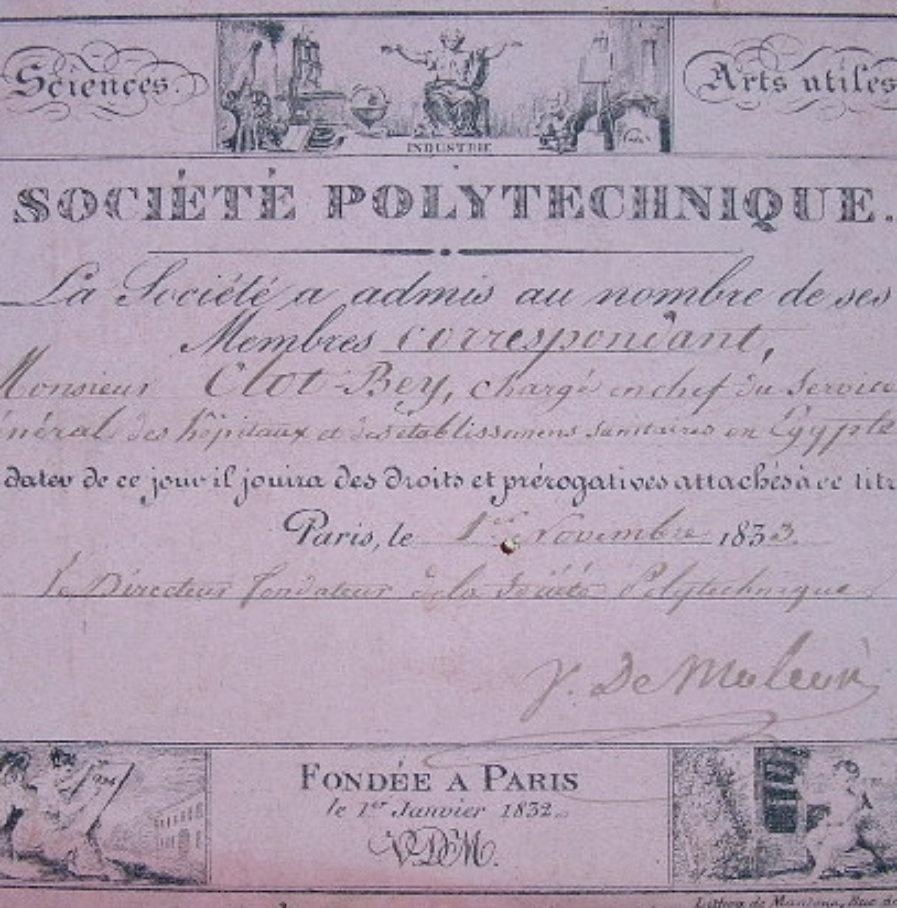 Sciences. Arts utiles
INDUSTRIE
SOCIÉTÉ POLYTECHNIQUE.
La Société a admis au nombre de ses
Membres correspondant,
Monsieur Clot-Bey, chargé en chef du Service
énéral des hôpitaux et des établissemens sanitaires en Egypte
dater de ce jour il jouira des droits et prérogatives attachés à ce titr
Paris, le 1er Novembre 1833.
le Directeur fondateur de la Société Polytechnique
V. De Moléon
FONDÉE A PARIS
le 1er Janvier 1832.
VDM.
Lithog de Mantoux, Rue du